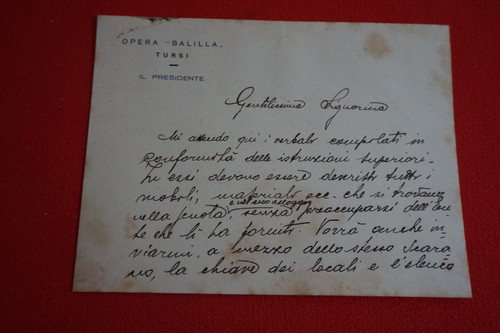 OPERA "BALILLA"
TURSI
IL PRESIDENTE
Gentilissima Signorina
Mi attendo qui i verbali compilati in
conformità delle istruzioni superiori.
In essi devono essere descritti tutti i
mobili, materiali ecc. che si trovano
nella scuola, senza preoccuparsi dell'en
te che li ha forniti. Vorrà anche in
viarmi, a mezzo dello stesso
no, la chiave dei locali e l'elenco